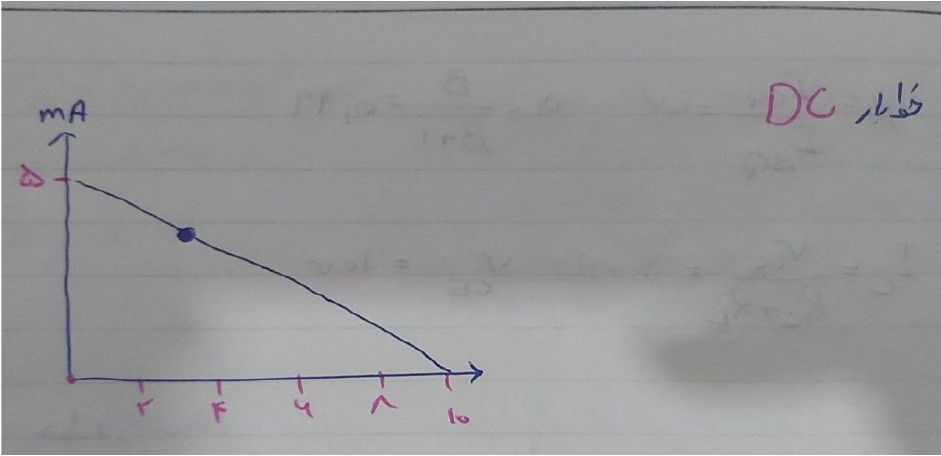 خط بار DC
mA
۵
۲ ۴ ۶ ۸ ۱۰